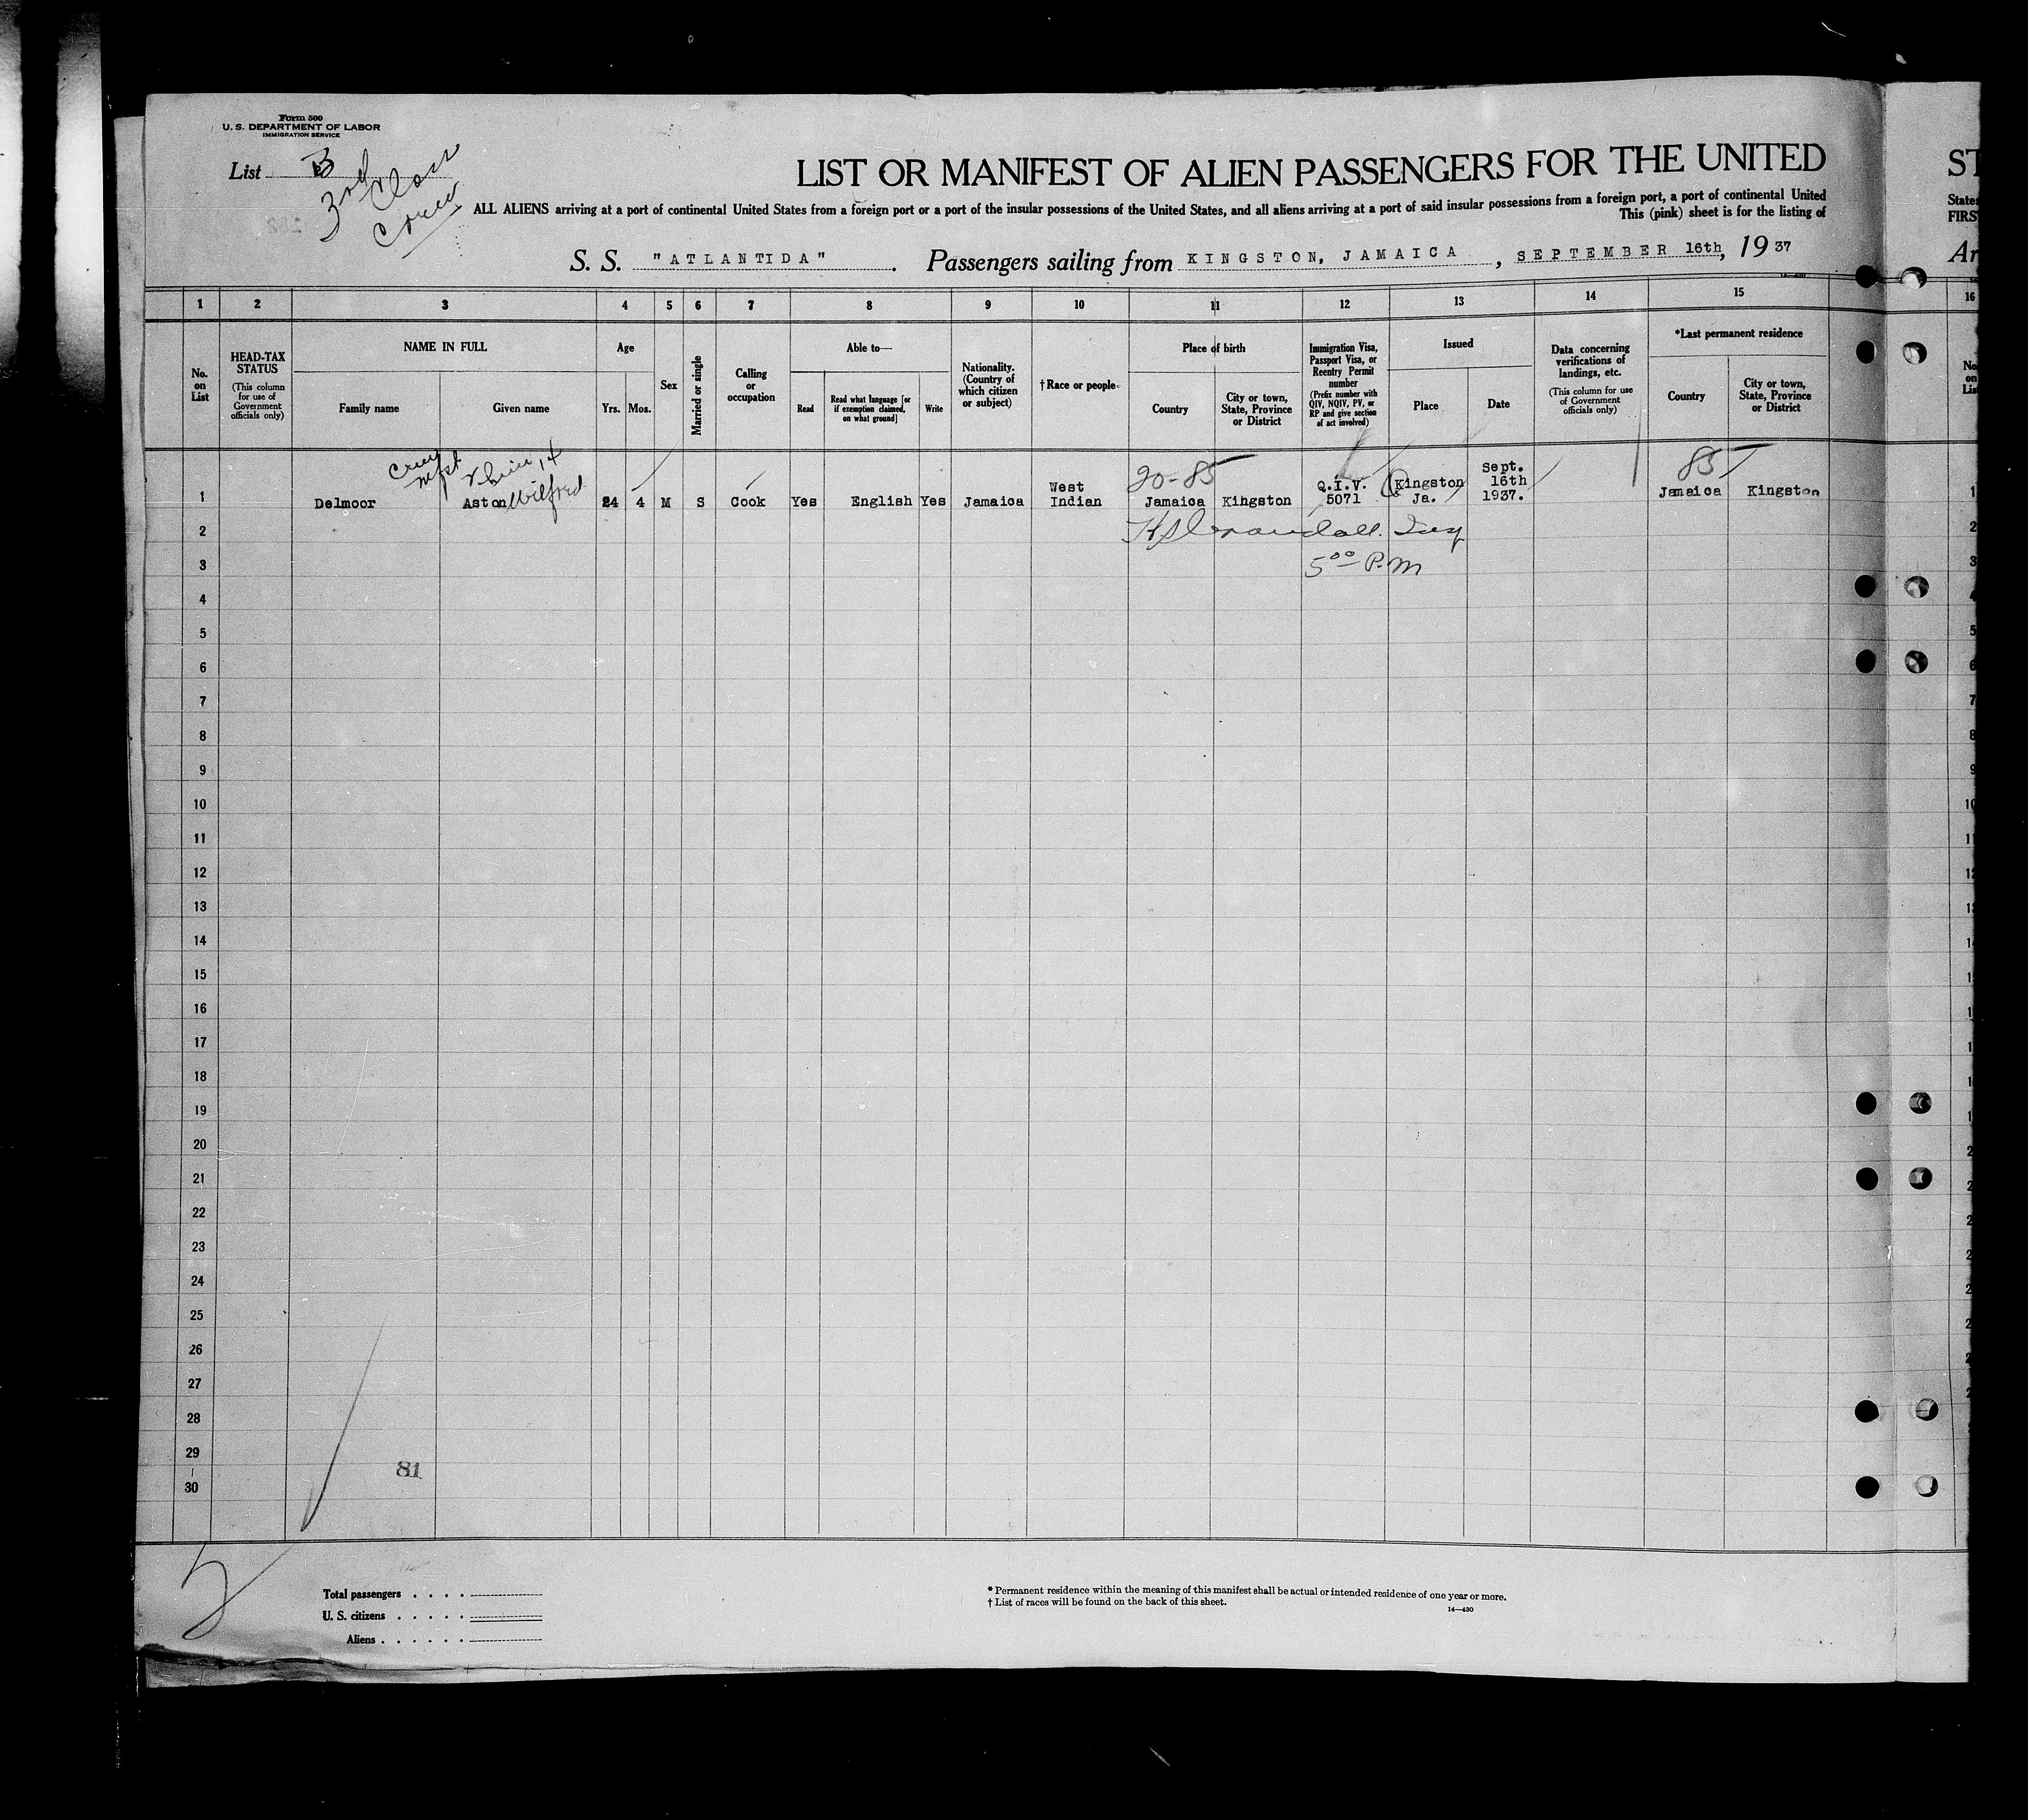 Form 500
U. S. DEPARTMENT OF LABOR
IMMIGRATION SERVICE
List B
3rd Class
LIST OR MANIFEST OF ALIEN PASSENGERS FOR THE UNITED
ST
ALL ALIENS arriving at a port of continental United States from a foreign port or a port of the insular possessions of the United States, and all aliens arriving at a port of said insular possessions from a foreign port, a port of continental United
States
This (pink) sheet is for the listing of
FIRS
S. S. "ATLANTIDA". Passengers sailing from KINGSTON, JAMAICA, SEPTEMBER 16th, 19 37
Ar
1 2 3 4 5 6 7 8 9 10 11 12 13 14 15 16
No. on List
HEAD-TAX STATUS
(This column for use of Government officials only)
NAME IN FULL
Family name
Given name
Age
Yrs. Mos.
Sex
Married or single
Calling or occupation
Able to—
Read
Read what language [or if exemption claimed, on what ground]
Write
Nationality. (Country of which citizen or subject)
† Race or people
Place of birth
Country
City or town, State, Province or District
Immigration Visa, Passport Visa, or Reentry Permit number
(Prefix number with QIV, NQIV, PV, or RP and give section of act involved)
Issued
Place
Date
Data concerning verifications of landings, etc.
(This column for use of Government officials only)
*Last permanent residence
Country
City or town, State, Province or District
20-85
85
1 Delmoor Aston Wilfred 24 4 M S Cook Yes English Yes Jamaica West Indian Jamaica Kingston Q.I.V. 5071 Kingston Ja. Sept. 16th 1937. Jamaica Kingston
2
3 5 00 P.M
4
5
6
7
8
9
10
11
12
13
14
15
16
17
18
19
20
21
22
23
24
25
26
27
28
29
81
30
Total passengers . . . .
U. S. citizens . . . . .
Aliens . . . . . .
* Permanent residence within the meaning of this manifest shall be actual or intended residence of one year or more.
† List of races will be found on the back of this sheet.
14—430